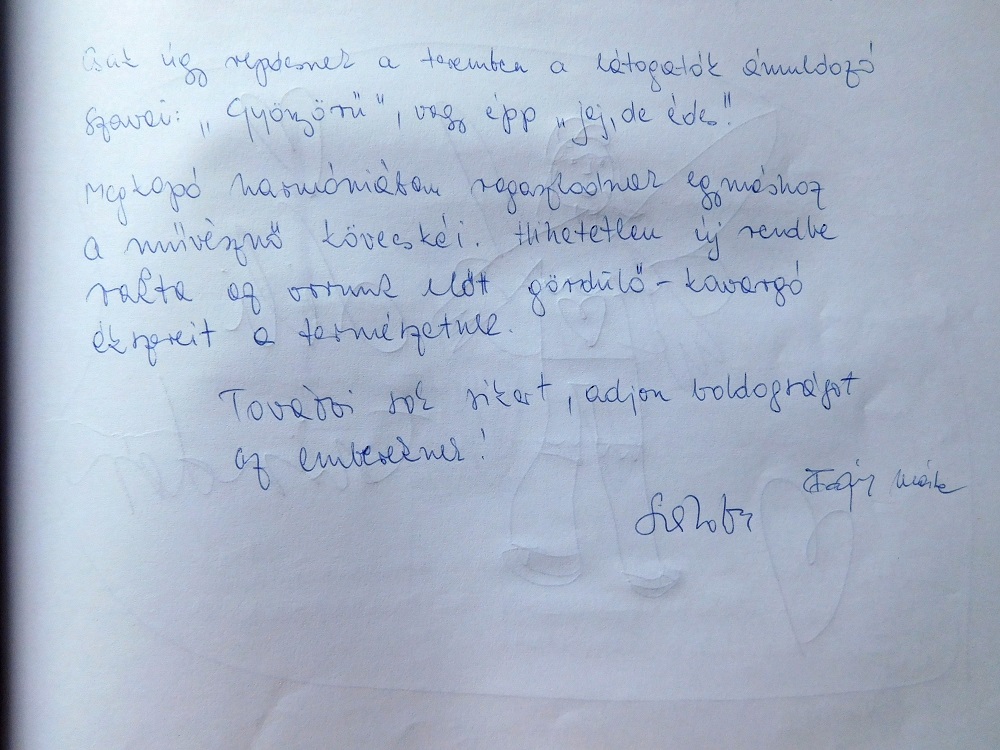 Csak úgy repdesnek a teremben a látogatók ámuldozó
szavai: „Gyönyörű”, vagy épp „jéj, de édes!”
Megkapó harmóniában ragaszkodnak egymáshoz
a művésznő kövecskéi. Hihetetlen új rendbe
rakta az orrunk előtt gördülő-kavargó
ékszereit a természetnek.
További sok sikert, adjon boldogságot
az embereknek!